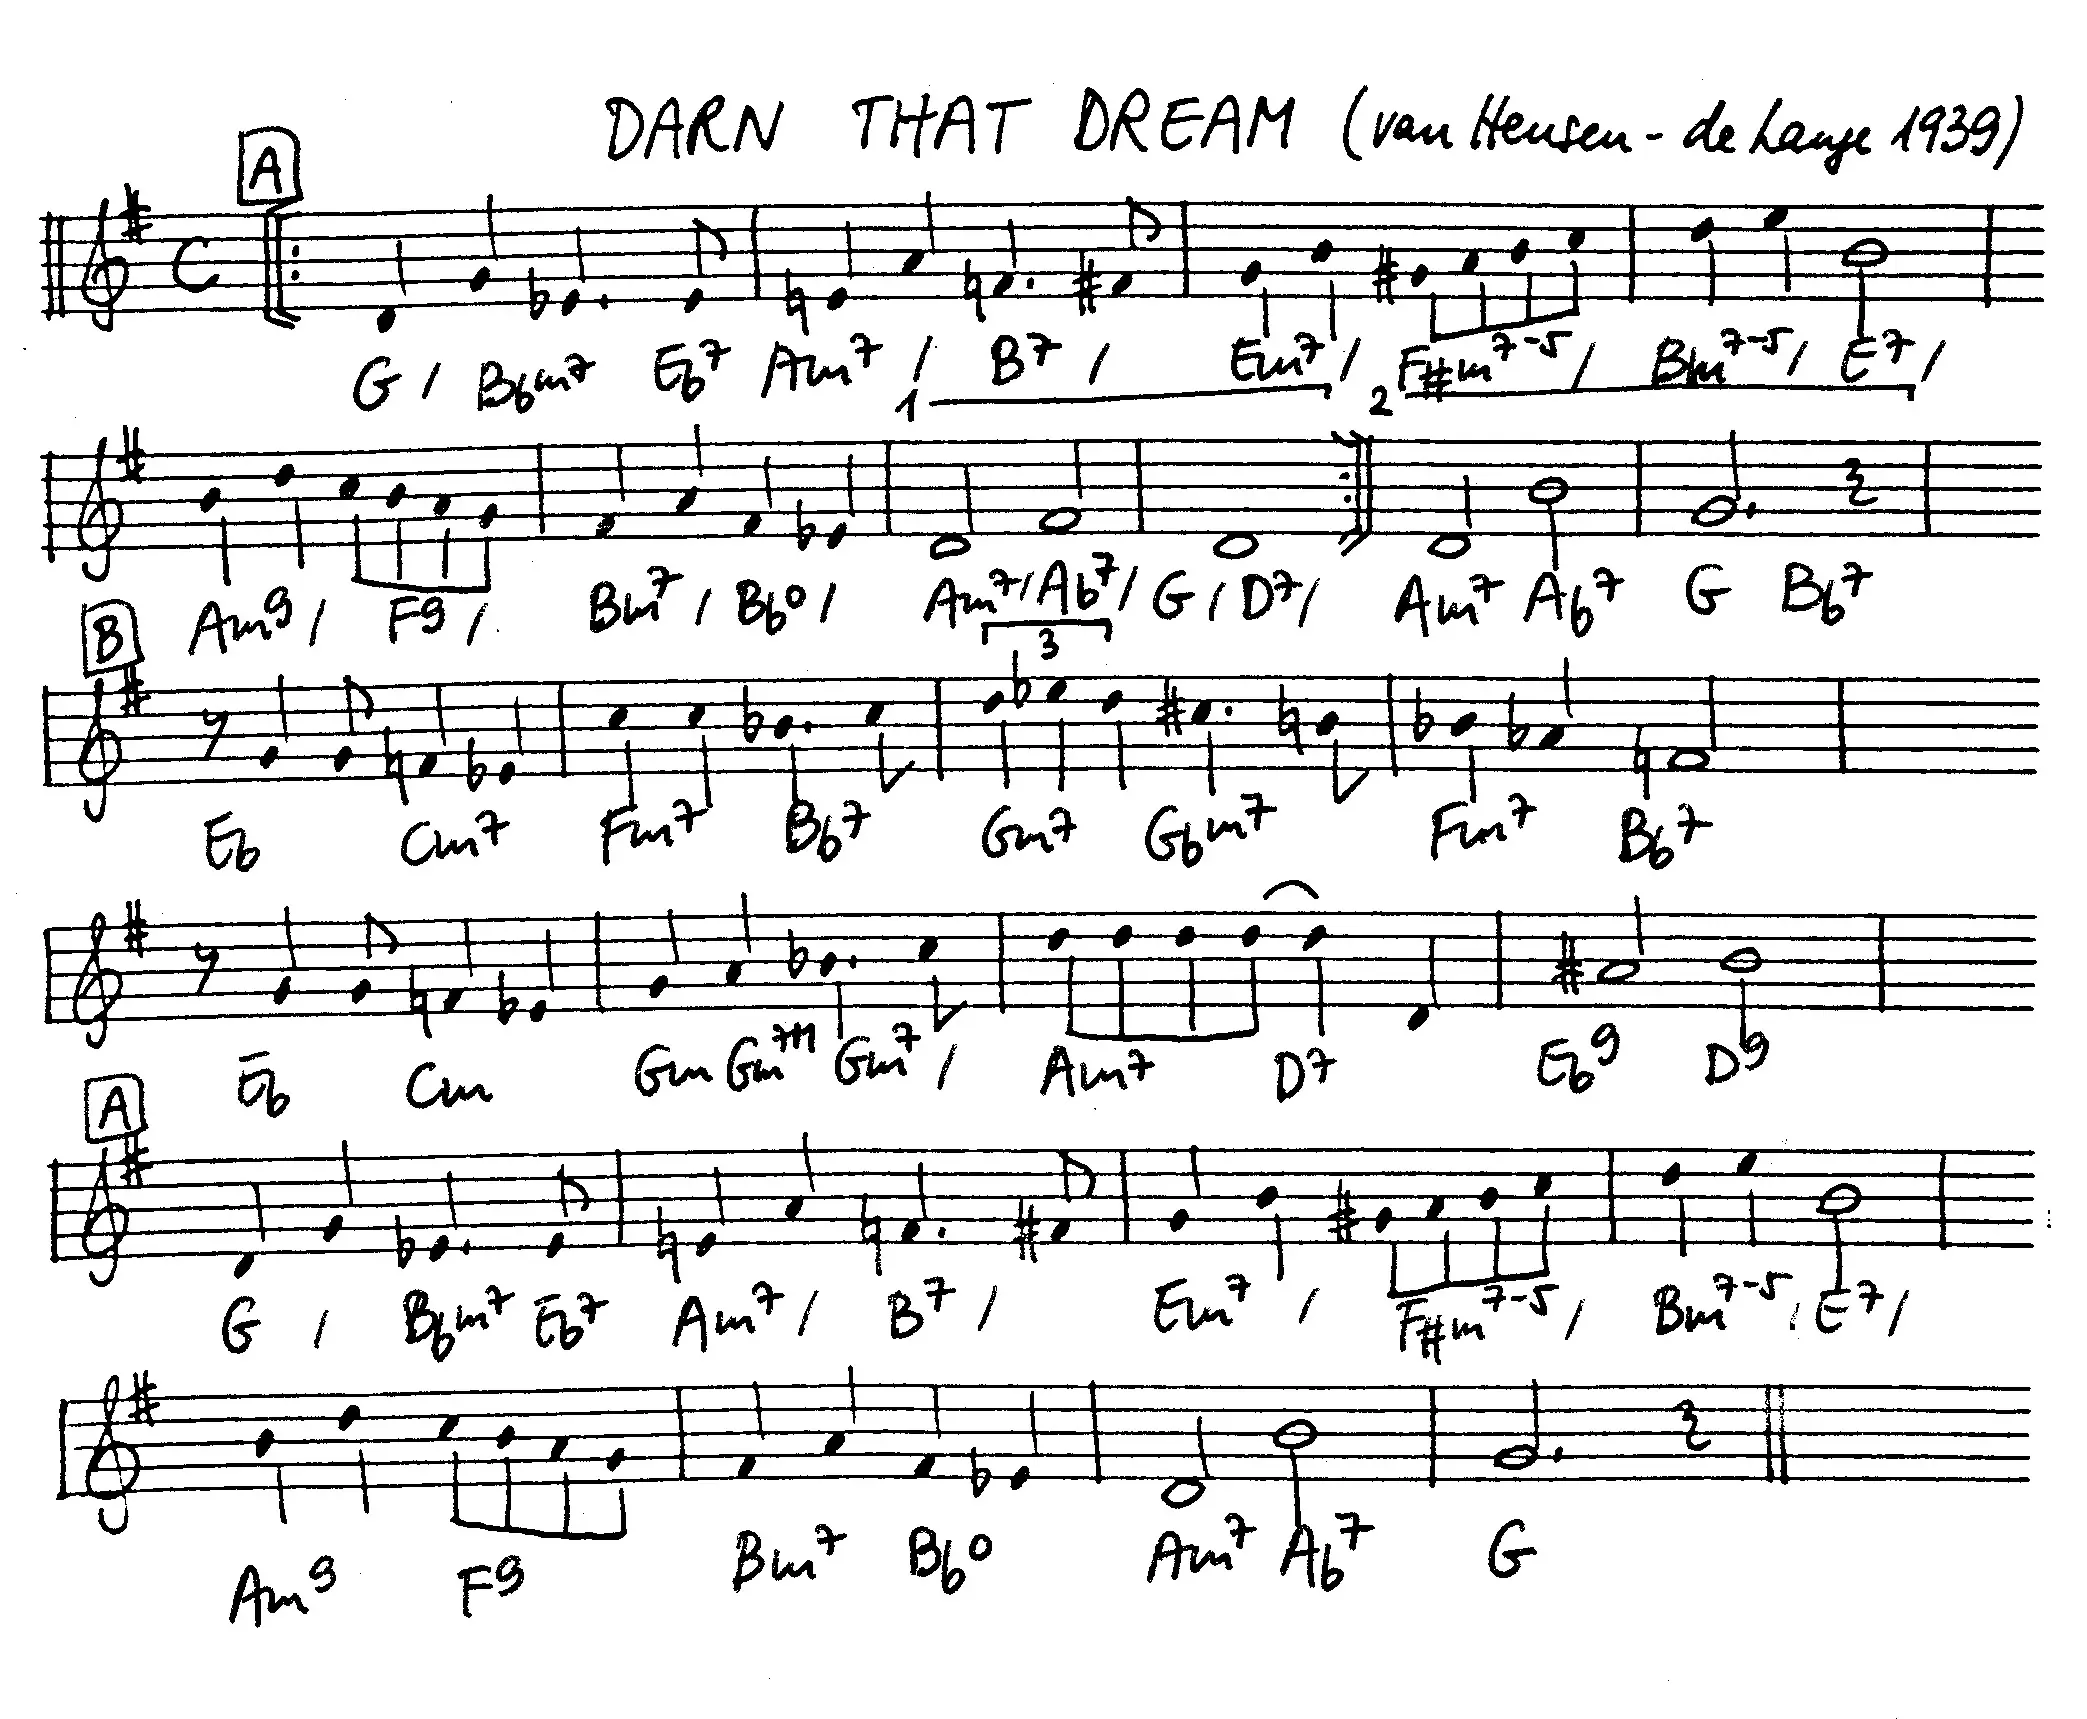 DARN THAT DREAM (van Heusen - de Lange 1939)
A
C
G / Bbm7 Eb7 Am7 / B7 / Em7 / F#m7-5 / Bm7-5 / E7 /
1 2
Am9 / F9 / Bm7 / Bb0 / Am7 / Ab7 / G / D7 / Am7 Ab7 G Bb7
B
3
Eb Cm7 Fm7 Bb7 Gm7 Gbm7 Fm7 Bb7
Eb Cm Gm Gm7+ Gm7 / Am7 D7 Eb9 D9
A
G / Bbm7 Eb7 Am7 / B7 / Em7 / F#m7-5 / Bm7-5 / E7 /
Am9 F9 Bm7 Bb0 Am7 Ab7 G